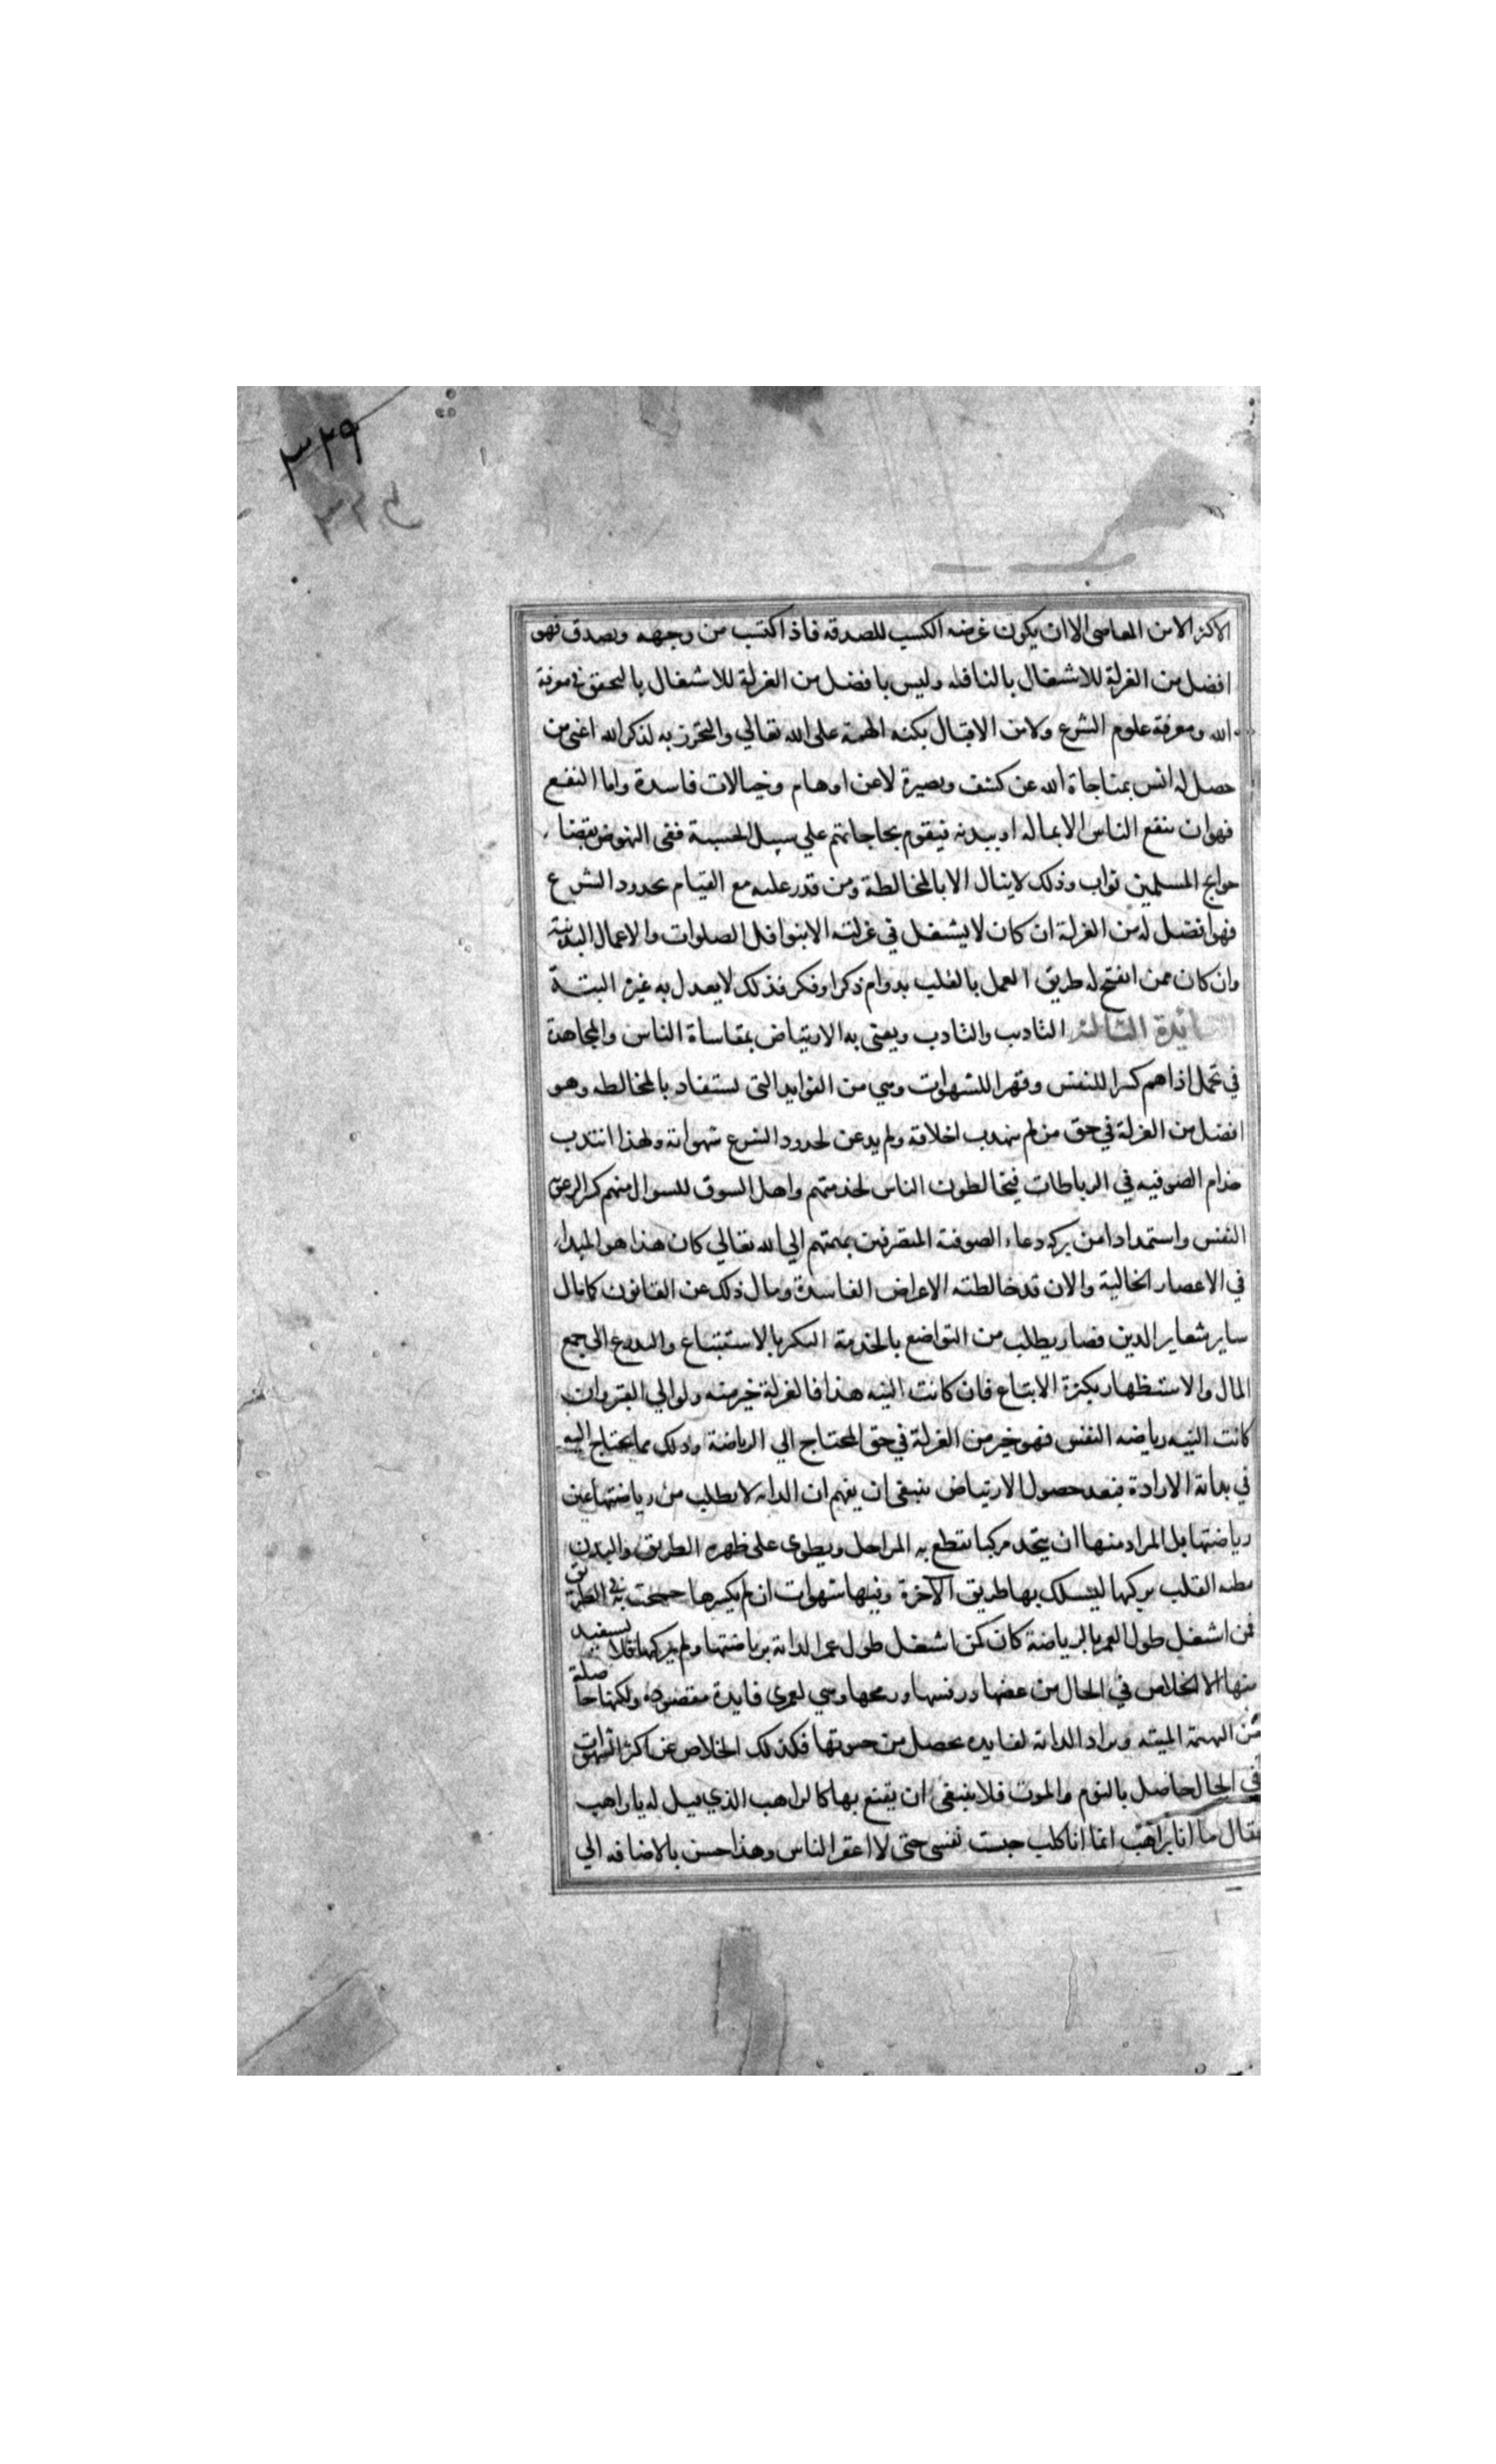 ٣٢٩
الاكثر الا من المعاصى الا ان يكون غرضه الكسب للصدقه فاذا اكتسب من وجهه وتصدق فهو
افضل من العزلة للاشتغال بالنافله وليس بافضل من العزلة للاشتغال بالتحقق في معرفة
الله ومعرفة علوم الشرع ولا من الاقبال بكنه الهمة على الله تعالي والتحرز به لذكر الله اغنى من
حصل له انس بمناجاة الله عن كشف وبصيرة لا عن اوهام وخيالات فاسدة واما النفع
فهو ان ينفع الناس الا بماله او ببدنه فيقوم بحاجاتهم علي سبيل الحسبة ففى النهوض بقضاء
حوايج المسلمين ثواب وذلك لا ينال الا بالمخالطة ومن قدر عليه مع القيام بحدود الشرع
فهو افضل له من العزلة ان كان لا يشتغل في عزلته الا بنوافل الصلوات والاعمال البدنية
وان كان ممن انفتح له طريق العمل بالقلب بدوام ذكر او فكر فذلك لا يعدل به غيره البتة
ائدة الثالثة التاديب والتادب ويعنى به الارتياض بمقاساة الناس والمجاهدة
في تحمل اذاهم كسرا للنفس وقهرا للشهوات وهي من الفوايد التى تستفاد بالمخالطه وهو
افضل من العزلة في حق من لم يتهذب اخلاقه ولم يدعن لحدود الشرع شهواته ولهذا انتدب
خدام الصوفيه في الرباطات فيخالطون الناس لخدمتهم واهل السوق للسوال منهم كسرا لرعونة
النفس واستمدادا من بركه دعاء الصوفية المنصرفين بهمتهم الي الله تعالي كان هذا هو المبداء
في الاعصار الخالية والان قد خالطته الاعراض الفاسدة ومال ذلك عن القانون كما مال
ساير شعاير الدين فصار يطلب من التواضع بالخدمة التكبر بالاستتباع والتدرع الى جمع
المال والاستظهار بكثرة الاتباع فان كانت النيه هذا فالعزلة خير منه ولو الي القبر وان
كانت النيه رياضه النفس فهو خير من العزلة في حق المحتاج الي الرياضة وذلك مما يحتاج اليه
في بداية الارادة فبعد حصول الارتياض ينبغى ان يفهم ان الدابه لا يطلب من رياضتها عين
رياضتها بل المراد منها ان يتخذ مركبا يقطع به المراحل ويطوى على ظهره الطريق والبدن
مطيه القلب يركبها ليسلك بها طريق الآخرة وفيها شهوات ان لم يكسرها جمحت به في الطريق
فمن اشتغل طول العمر بالرياضة كان كمن اشتغل طول عمر الدابة برياضتها ولم يركبها فلا يستفيد
منها الا الخلاص في الحال من عضها ورفسها ورمحها وهي لعمرى فايدة مقصوده ولكنها حاصلة
من البهيمة الميته ويراد الدابة لفايده يحصل من حيوتها فكذلك الخلاص عن اكثر الشهوات
في الحال حاصل بالنوم والموت فلا ينبغى ان يقنع بها كالراهب الذي قيل له يا راهب
فقال ما انا براهب انما انا كلب حبست نفسى حتى لا اعقر الناس وهذا حسن بالاضافه الي